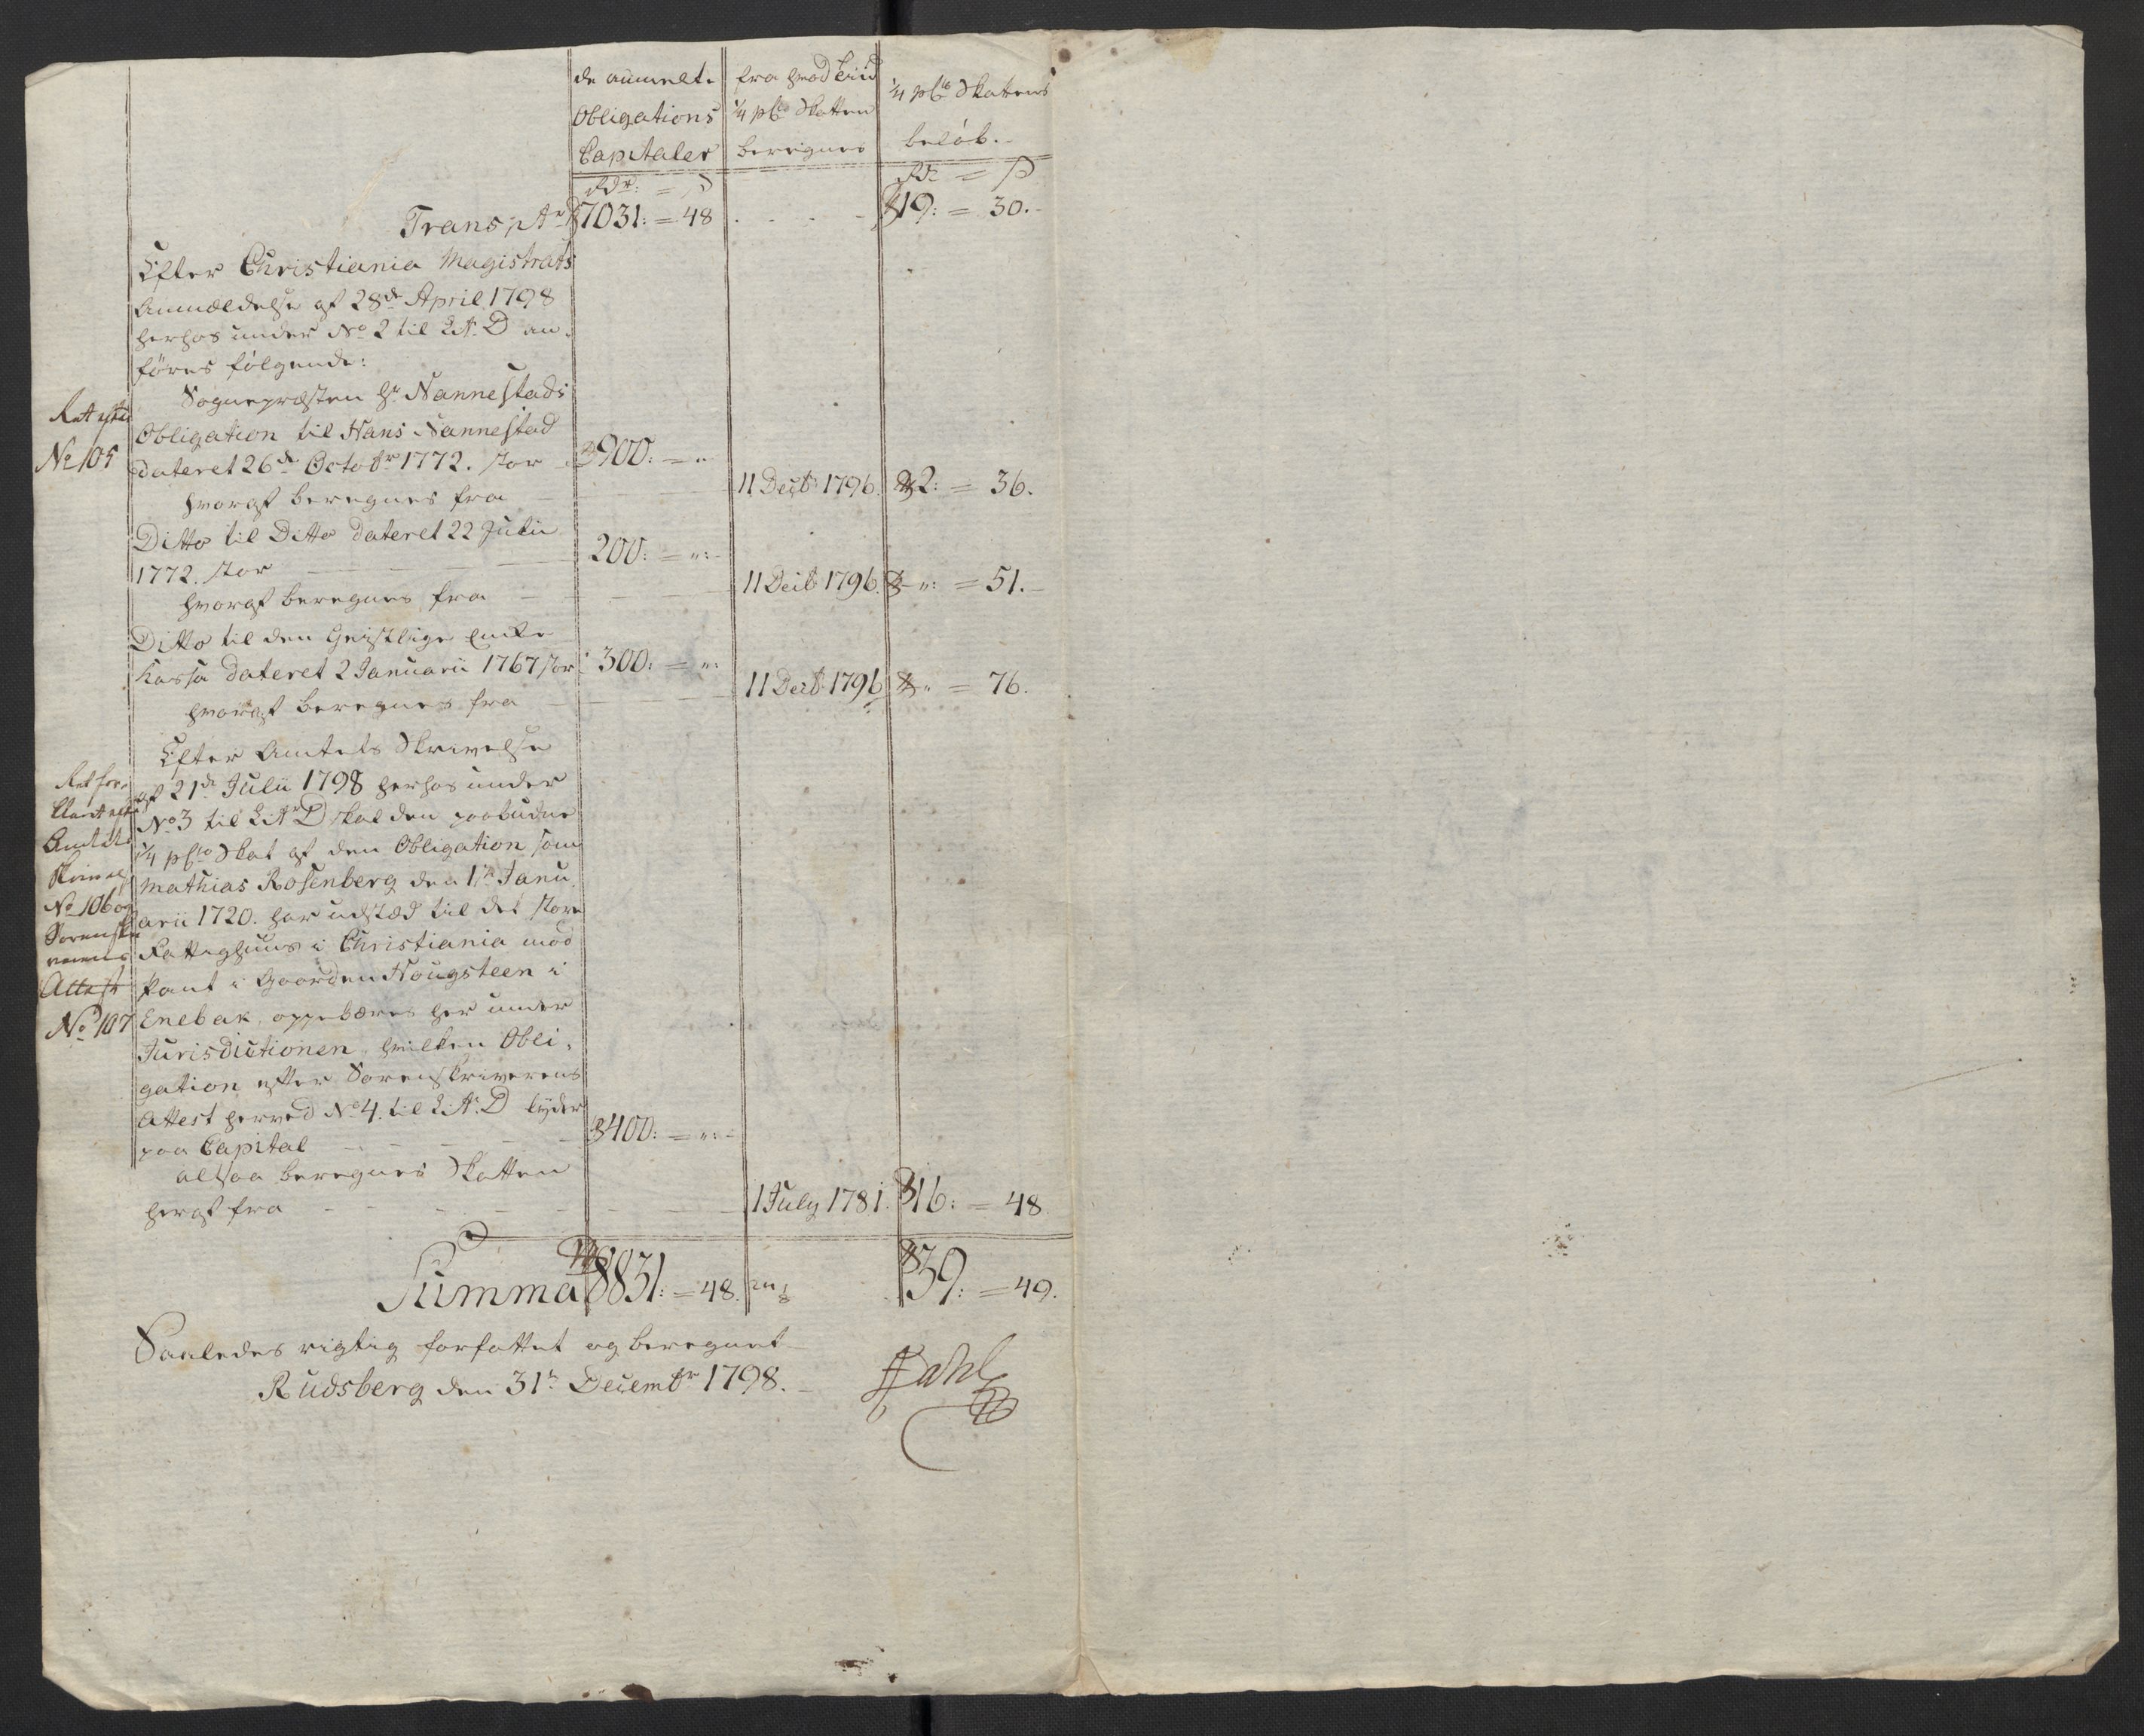 de anmelte
Obligations
Capitaler
fra hvad tiid
1/4 pCto Skatten
beregnes
1/4 pCto Skattens
beløb.
Rdr: = ß
Rdr = ß
Transptr 7031: = 48 - - - 19: = 30.
Efter Christiania Magistrats
Anmældelse af 28de April 1798
herhos under No 2 til Litr. D an-
føres følgende:
Sognepræsten Hr Nannestads
Obligation til Hans Nannestad
dateret 26de Octobr 1772. stor 900: = "
hvoraf beregnes fra 11 Decbr 1796. 2: = 36.
Ditto til Ditto dateret 22 Julii
1772. stor 200: = ":
hvoraf beregnes fra 11 Decbr 1796. ": = 51.
Ditto til den Geistlige Enke
Kassa dateret 2 Januarii 1767 stor 300: = ":
hvoraf beregnes fra 11 Decbr 1796 " = 76.
Efter Amtets Skrivelse
af 21de Julii 1798 herhos under
No 3 til Litr D skal den paabudne
1/4 pCto Skat af den Obligation som
Mathias Rosenberg den 1te Janu
arii 1720. har udstæd til det store
Fattighuus i Christiania mod
Pant i Gaarden Hougsteen i
Enebak oppebæres her under
Jurisdictionen, hvilken Obli-
gation efter Sorenskriverens
Attest herved No 4. til Litr. D lyder
paa Capital 400: = ":
altsaa beregnes Skatten
heraf fra 1 July 1781. 16: = 48
Summa 8831: = 48. 39: = 49.
Saaledes rigtig forfattet og beregnet
Rudsberg den 31te Decembr 1798.
No 105
Amtets
No 106 og
Sorenskri
verens
Attest
No 107